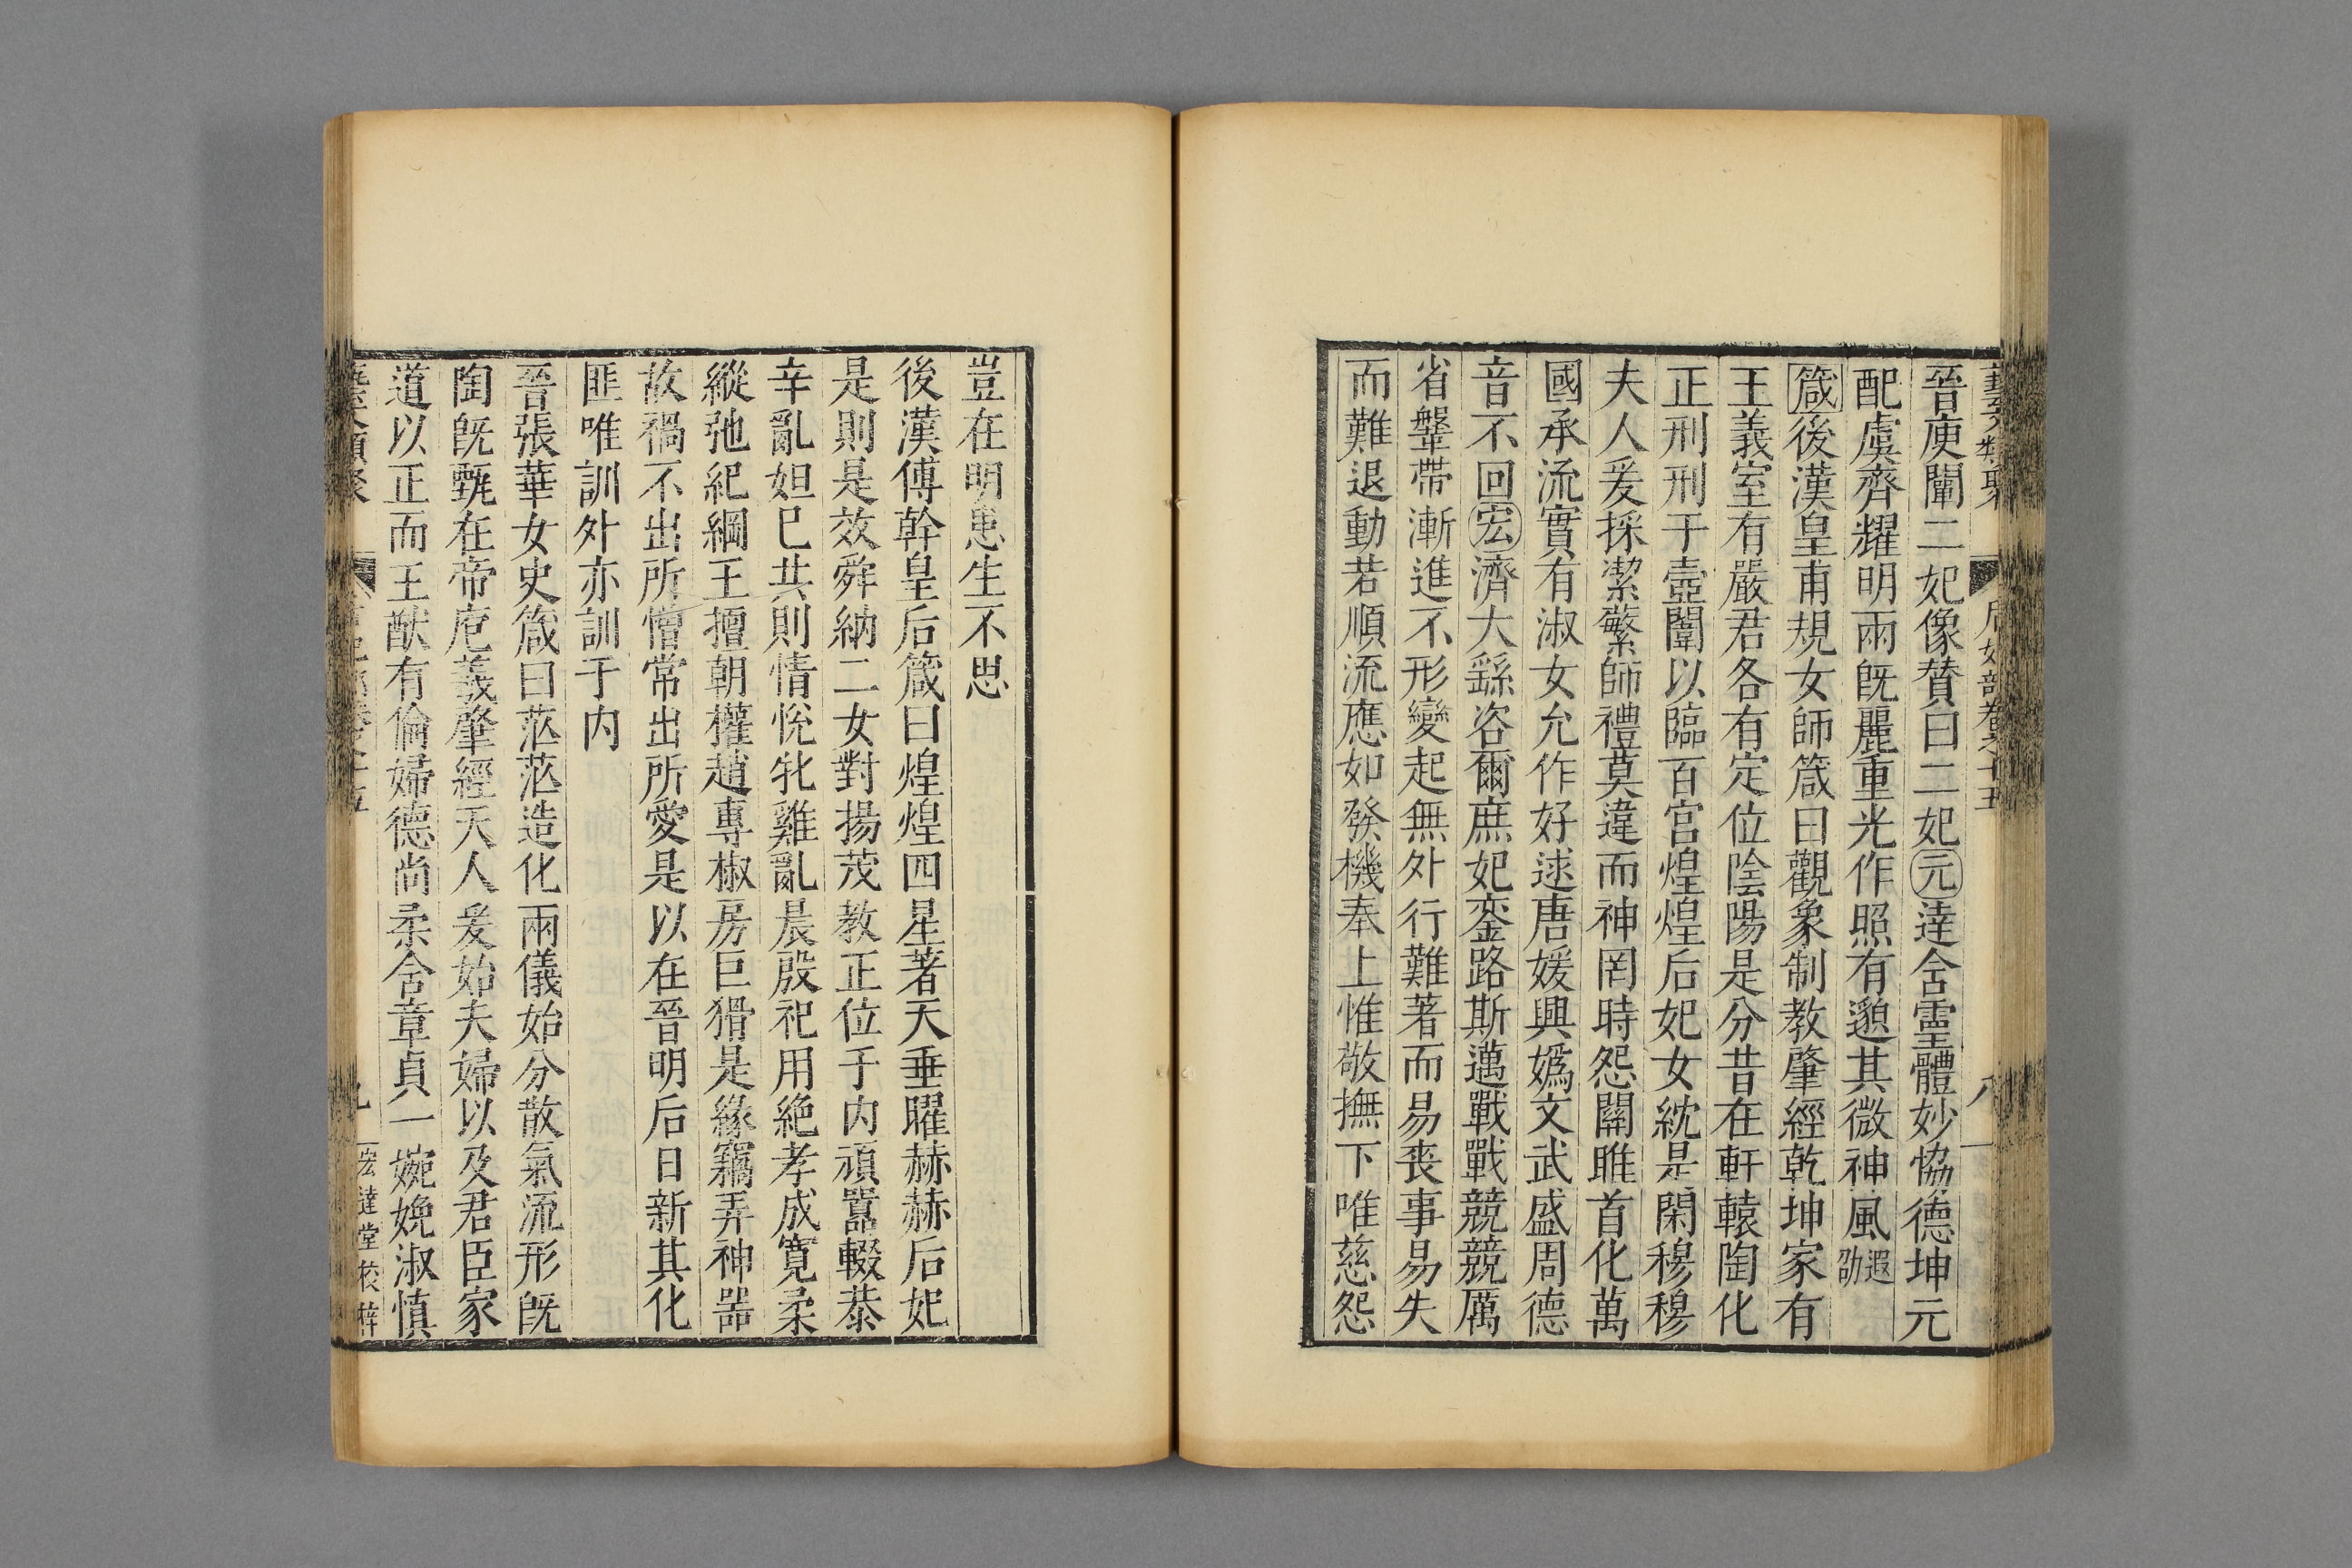 藝文類聚 后妃部卷之十五 八
晉庾闡二妃像贊曰二妃元達含靈體妙協德坤元
配虞齊耀明兩旣麗重光作照有邈其微神風遐劭
箴後漢皇甫規女師箴曰觀象制教肇經乾坤家有
王義室有嚴君各有定位陰陽是分昔在軒轅陶化
正刑刑于壼闈以臨百宮煌煌后妃女統是閑穆穆
夫人爰採潔蘩師禮莫違而神罔時怨關雎首化萬
國承流實有淑女允作好逑唐媛興嬀文武盛周德
音不回宏濟大繇咨爾庶妃鑾路斯邁戰戰競競厲
省鞶帶漸進不形變起無外行難著而易喪事易失
而難退動若順流應如發機奉上惟敬撫下唯慈怨
豈在明患生不思
後漢傅幹皇后箴曰煌煌四星著天垂曜赫赫后妃
是則是效舜納二女對揚茂教正位于内頑嚚輟恭
辛亂妲己共則情悅牝雞亂晨殷祀用絶孝成寬柔
縱弛紀綱王擅朝權趙專椒房巨猾是緣竊弄神器
故禍不出所憎常出所愛是以在晉明后日新其化
匪唯訓外亦訓于内
晉張華女史箴曰茫茫造化兩儀始分散氣流形旣
陶旣甄在帝庖羲肇經天人爰始夫婦以及君臣家
道以正而王猷有倫婦德尚柔含章貞一婉娩淑愼
類聚 卷之十五 九 宏達堂校梓